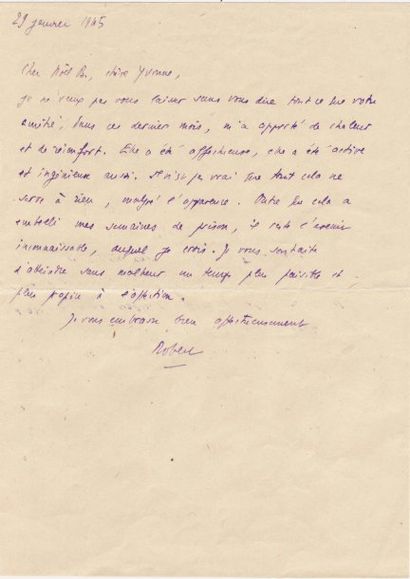 29 janvier 1945
Cher Noël B., chère Yvonne,
je ne veux pas vous laisser sans vous dire tout ce que votre
amitié, dans ces derniers mois, m'a apporté de chaleur
et de réconfort. Elle a été affectueuse, elle a été active
et ingénieuse aussi. Il n'est pas vrai que tout cela ne
serve à rien, malgré l'apparence. Outre que cela a
embelli mes semaines de prison, il reste l'avenir
inconnaissable, auquel je crois. Je vous souhaite
d'atteindre sans malheur un temps plus paisible et
plus propice à l'affection.
Je vous embrasse bien affectueusement
Robert